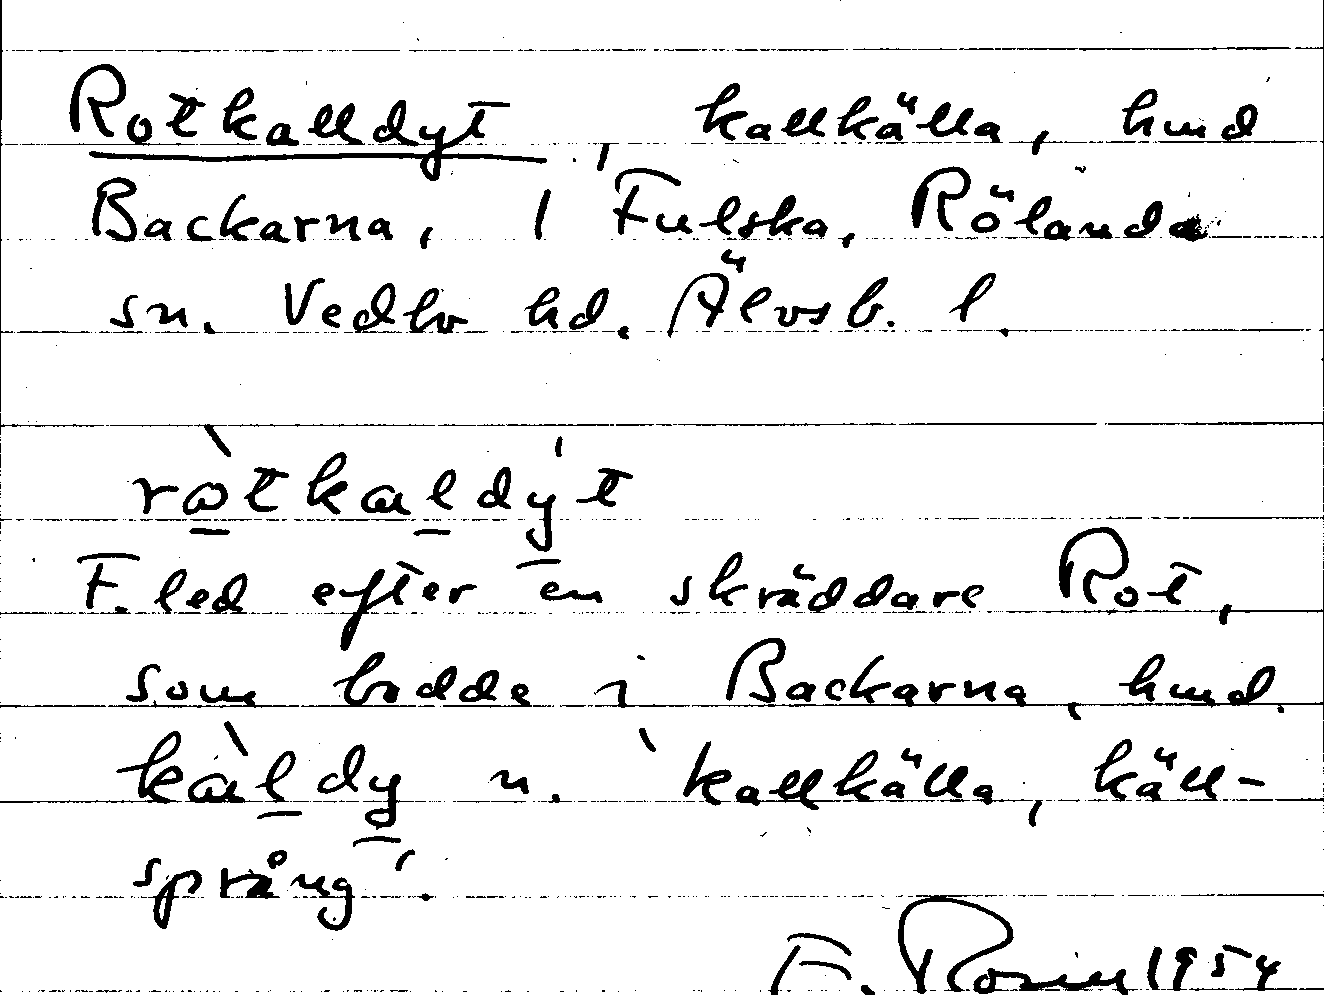 Rotkalldyt, kallkälla, hmd
Backarna, 1 Fulska, Rölanda
sn. Vedbo hd. Älvsb. l.
ròtkaldýt
F. led efter en skräddare Rot,
som bodde i Backarna, hmd.
kàldy n. `kallkälla, käll-
språng´.
1954